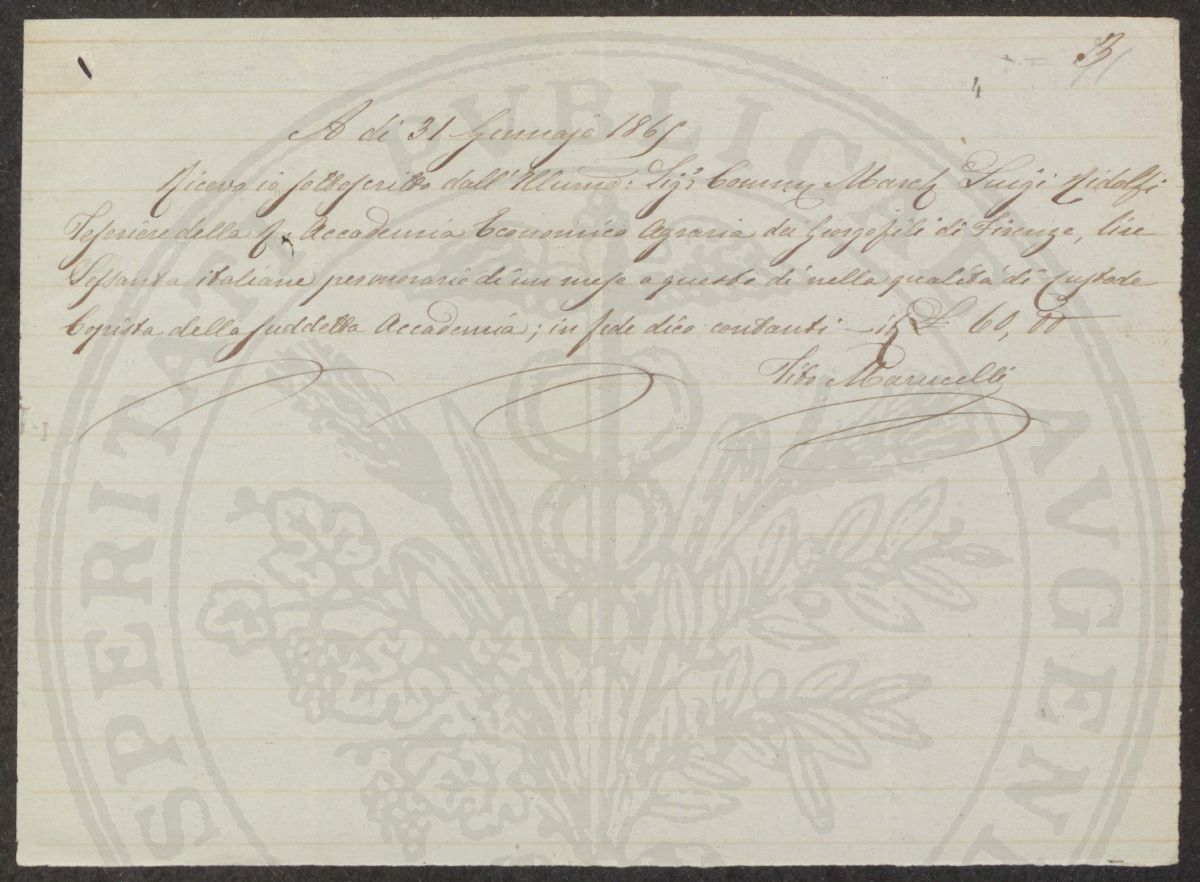 4
A di 31 Gennajo 1865
Ricevo io sottoscritto dall' Illumo: Sigr. Commr. March. Luigi Ridolfi
Tesoriere della R. Accademia Economico Agraria dei Georgofili di Firenze, lire
Sessanta italiane per onorario di un mese a questo dì nella qualità di Custode
Copista della suddetta Accademia; in fede dico contanti - it. L. 60, 00
Tito Marucelli
PERITATI PVBLICAE AVGEN